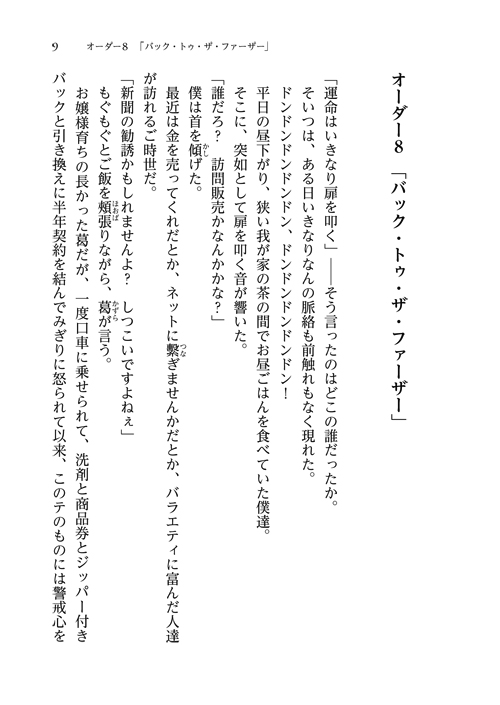 9 オーダー8 「バック・トゥ・ザ・ファーザー」
オーダー8 「バック・トゥ・ザ・ファーザー」
「運命はいきなり扉を叩く」――そう言ったのはどこの誰だったか。
そいつは、ある日いきなりなんの脈絡も前触れもなく現れた。
ドンドンドンドンドン、ドンドンドンドンドン！
平日の昼下がり、狭い我が家の茶の間でお昼ごはんを食べていた僕達。
そこに、突如として扉を叩く音が響いた。
「誰だろ？ 訪問販売かなんかかな？」
僕は首を傾かしげた。
最近は金を売ってくれだとか、ネットに繫つなぎませんかだとか、バラエティに富んだ人達
が訪れるご時世だ。
「新聞の勧誘かもしれませんよ？ しつこいですよねぇ」
もぐもぐとご飯を頰張ほおばりながら、葛かずらが言う。
お嬢様育ちの長かった葛だが、一度口車に乗せられて、洗剤と商品券とジッパー付き
バックと引き換えに半年契約を結んでみぎりに怒られて以来、このテのものには警戒心を